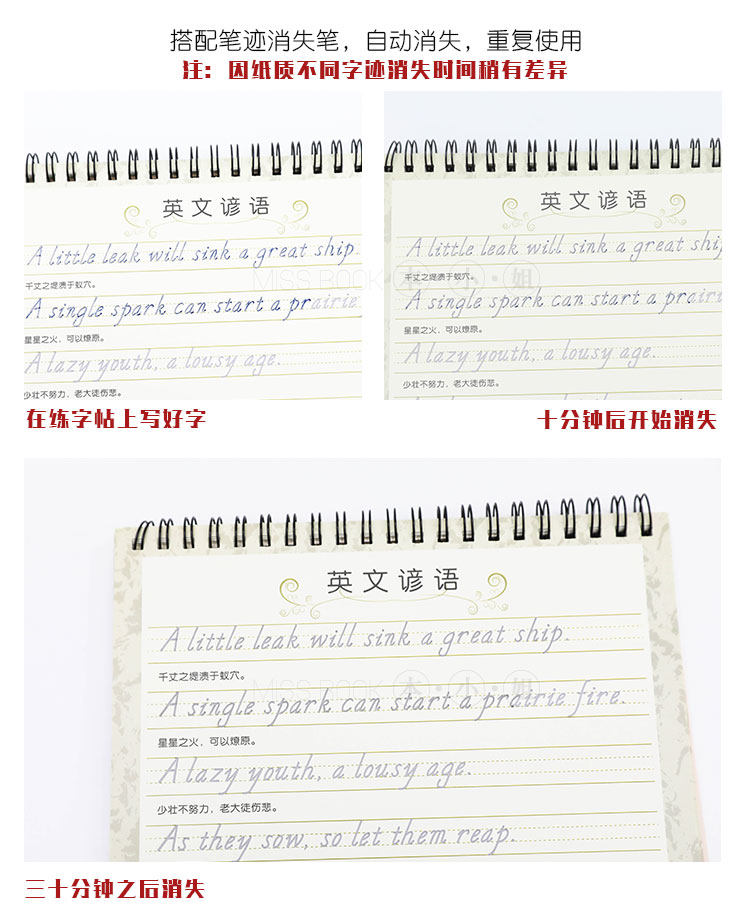 搭配笔迹消失笔，自动消失，重复使用
注：因纸质不同字迹消失时间稍有差异
英文谚语
A little leak will sink a great ship.
千丈之堤溃于蚁穴。
A single spark can start a prairie
星星之火，可以燎原。
A lazy youth, a lousy age.
少壮不努力，老大徒伤悲。
在练字帖上写好字
英文谚语
A little leak will sink a great ship
千丈之堤溃于蚁穴。
A single spark can start a prairi
星星之火，可以燎原。
A lazy youth, a lousy age.
少壮不努力，老大徒伤悲。
十分钟后开始消失
MISS BOOK 本·小·姐
英文谚语
A little leak will sink a great ship.
千丈之堤溃于蚁穴。
MISS BOOK 本·小·姐
A single spark can start a prairie fire.
星星之火，可以燎原。
A lazy youth, a lousy age.
少壮不努力，老大徒伤悲。
As they sow, so let them reap.
三十分钟之后消失